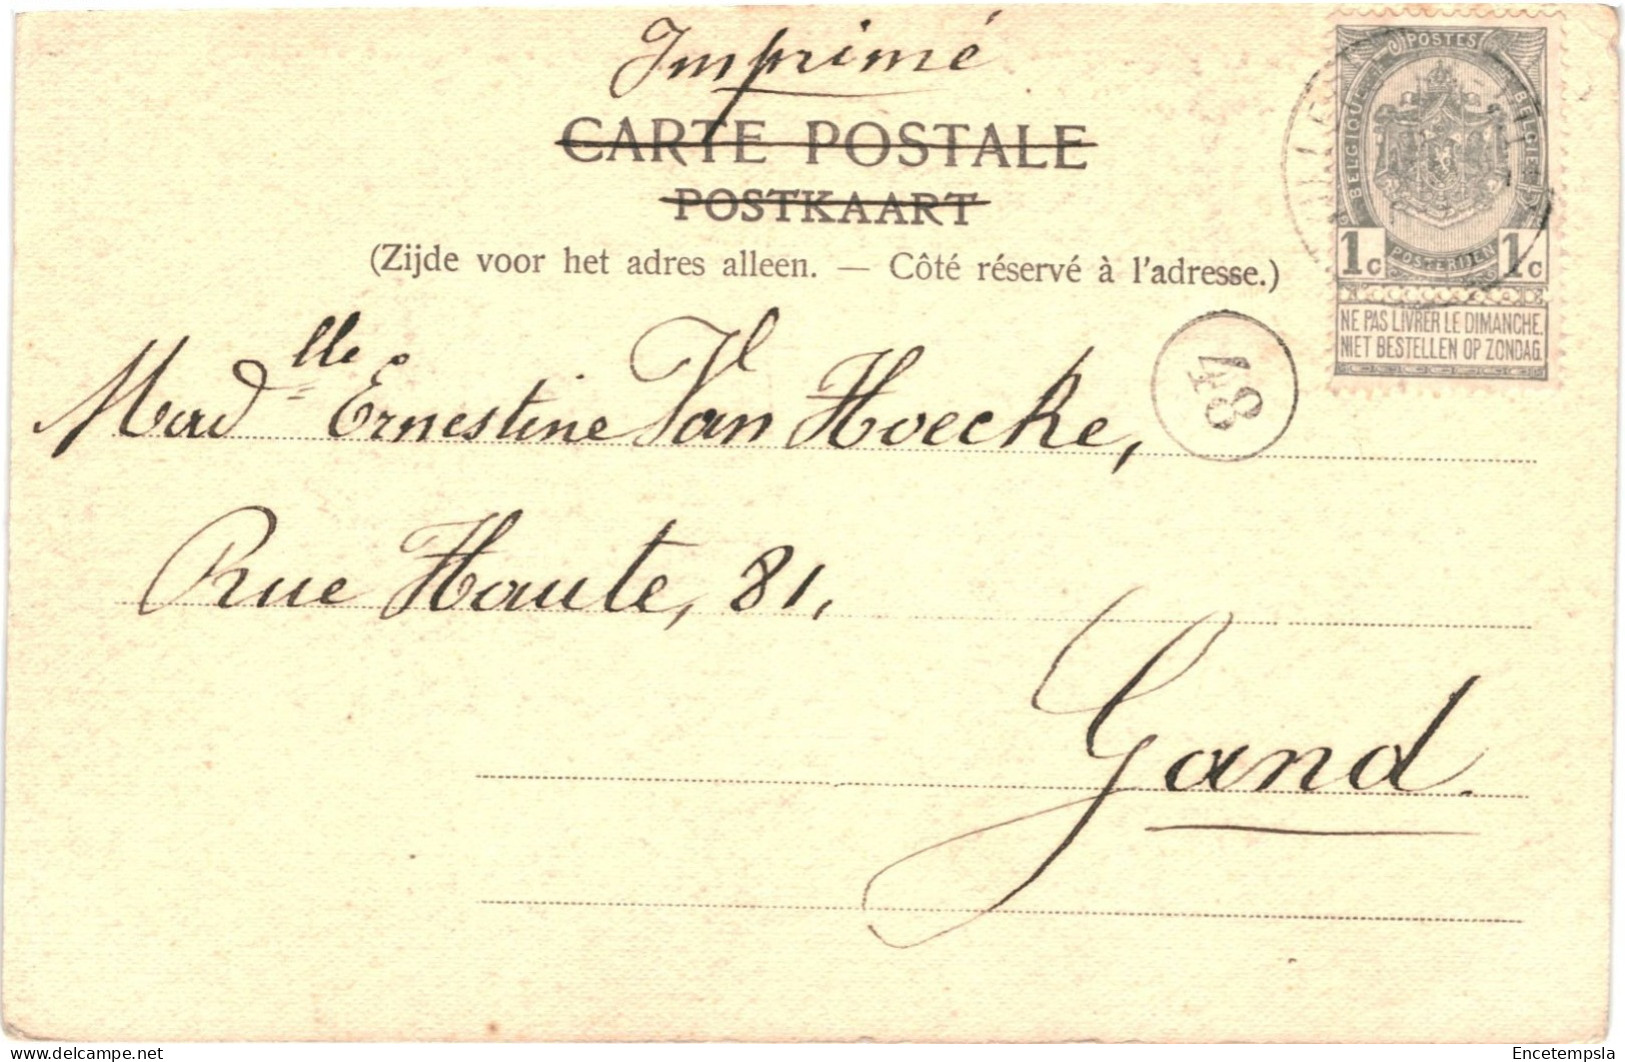 Imprimé
CARTE POSTALE
POSTKAART
(Zijde voor het adres alleen. — Côté réservé à l'adresse.)
POSTES
BELGIQUE
BELGIE
POSTERIJEN
1c 1c
NE PAS LIVRER LE DIMANCHE.
NIET BESTELLEN OP ZONDAG.
48
Madelle Ernestine Van Hoecke,
Rue Haute, 81,
Gand.
Encetempsla